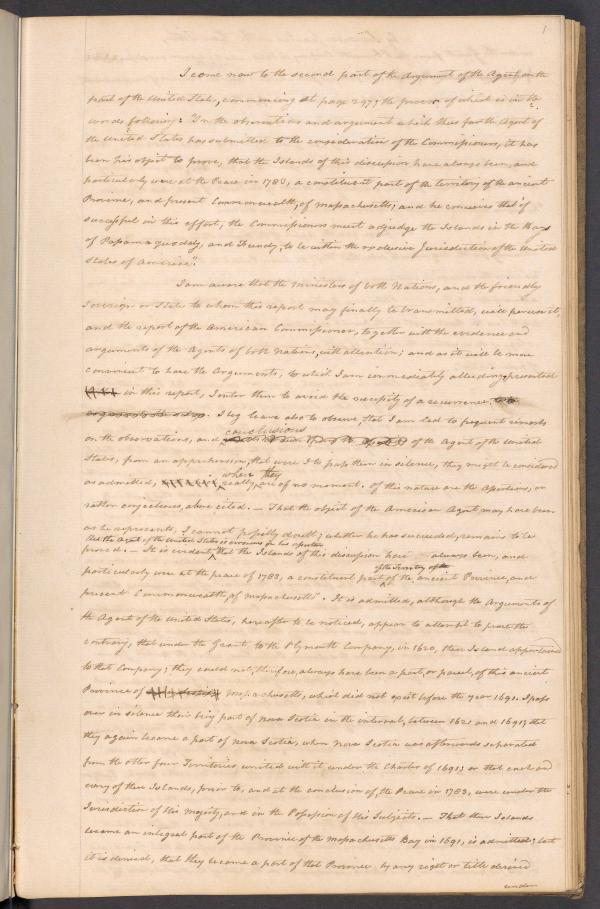 1
I come now to the second part of the Argument of the Agent on the
part of the United States, commencing at page 297; the process of which is in the
words following: "In the observations and argument which thus far the Agent of
the United States has submitted to the consideration of the Commissioners, it has
been his object to prove, that the Islands of this discussion have always been, and
particularly were at the Peace in 1783, a constituent part of the territory of the ancient
Province, and present Commonwealth, of Massachusetts; and he conceives that if
successful in this effort, the Commissioners must adjudge the Islands in the Bays
of Passamaquoddy, and Fundy, to be within the exclusive Jurisdiction of the United
States of America".
I am aware that the Ministers of both Nations, and the friendly
Sovereign or State to whom this report may finally be transmitted, will peruse it,
and the report of the American Commissioner, together with the evidence and
arguments of the Agents of both Nations, with attention; and as it will be more
convenient to have the Arguments, to which I am immediately alluding, presented
in this report, I enter them to avoid the necessity of a recurrence to
. I beg leave also to observe, that I am led to frequent remarks
conclusions
on the observations, and of the Agent of the United
States, from an apprehension, that were I to pass them in silence, they might be considered
when they
as admitted, really are of no moment. Of this nature are the Assertions, or
rather conjectures, above cited. — That the object of the American Agent may have been,
as he represents, I cannot possibly doubt; whether he has succeeded, remains to be
that the Agent of the United States is erroneous in his assertion
proved. — It is evident, that the Islands of this discussion have always been, and
of the Territory of the
particularly were at the peace of 1783, a constituent part of the ancient Province, and
present Commonwealth, of Massachusetts". It is admitted, although the Arguments of
the Agent of the United States, hereafter to be noticed, appear to attempt to prove the
contrary, that under the Grant to the Plymouth Company, in 1620, these Islands appertained
to that Company; they could not, therefore, always have been a part, or parcel, of this ancient
Province of Massachusetts, which did not exist before the year 1691. I pass
over in silence their being part of Nova Scotia in the interval, between 1621 and 1691; that
they again became a part of Nova Scotia, when Nova Scotia was afterwards separated
from the other four Territories united with it under the Charter of 1691; or that each and
every of these Islands, prior to, and at the conclusion of, the Peace in 1783, were under the
Jurisdiction of his Majesty, and in the Possession of his Subjects. — That these Islands
became an integral part of the Province of the Massachusetts Bay in 1691, is admitted; but
it is denied, that they became a part of that Province by any right or title derived
under